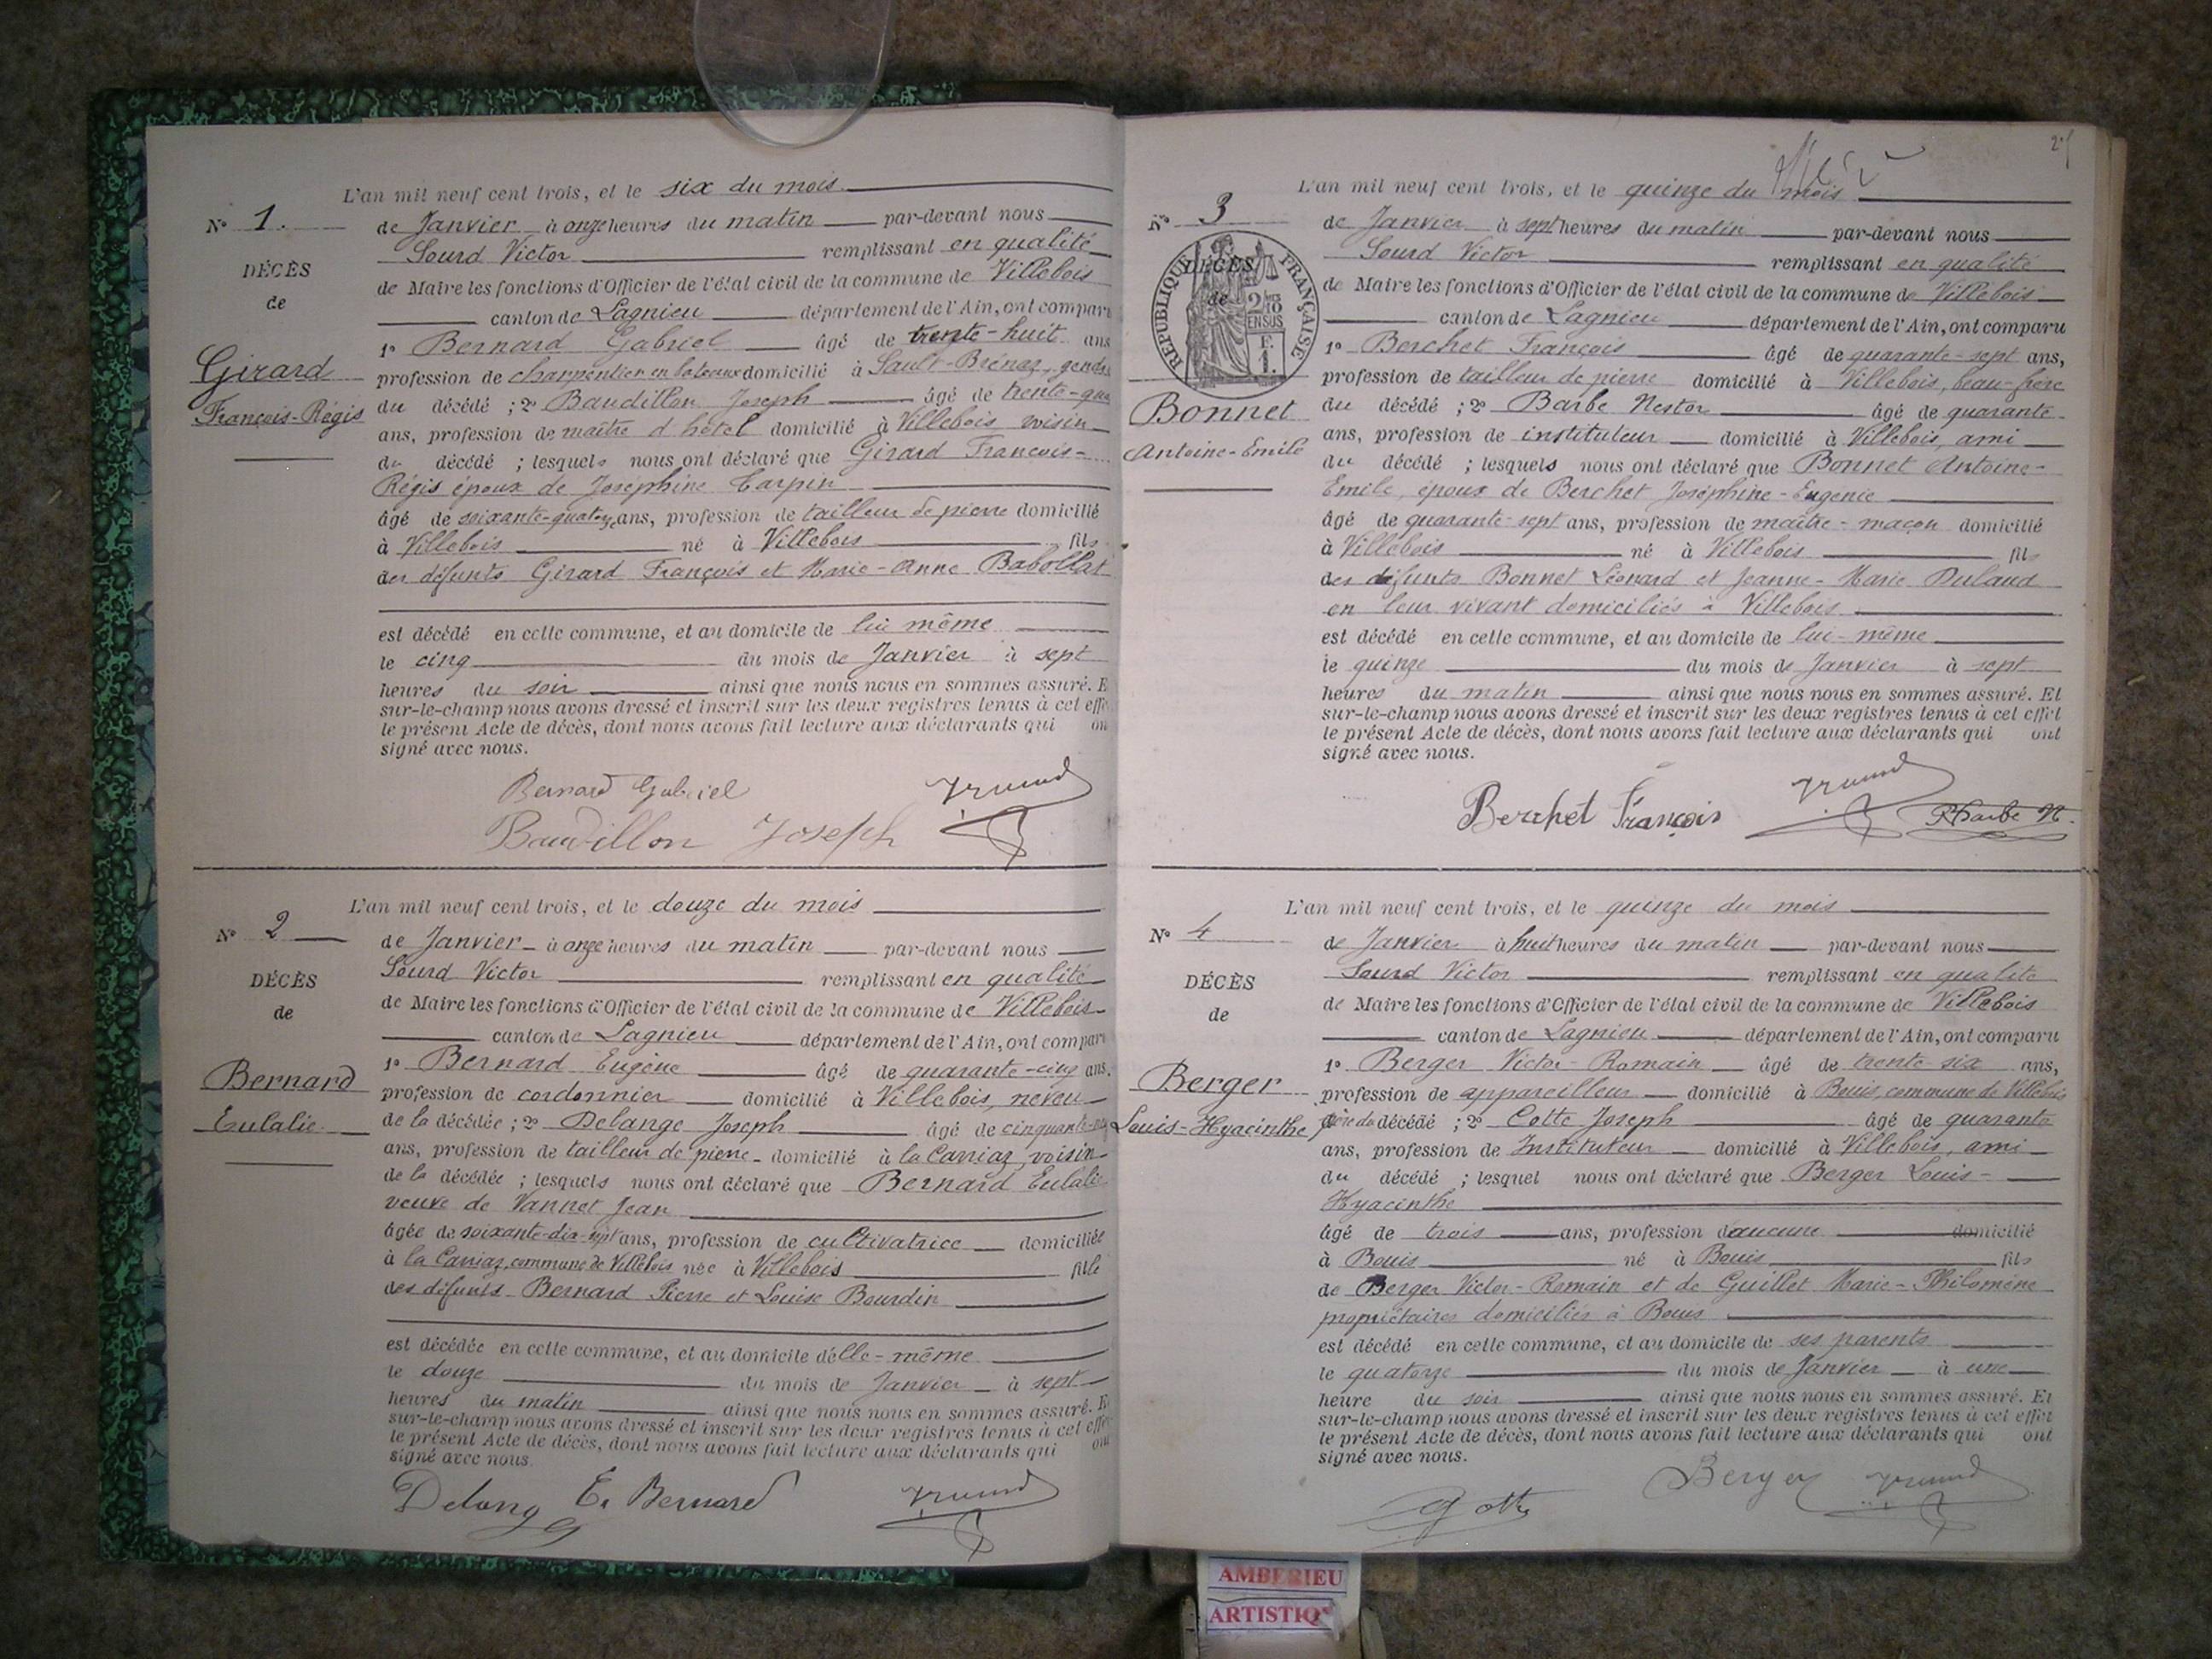 L'an mil neuf cent trois, et le six du mois
N° 1.
de Janvier à onze heures du matin par-devant nous
Sourd Victor remplissant en qualité
DÉCÈS
de Maire les fonctions d'Officier de l'état civil de la commune de Villebois
de
canton de Lagnieu département de l'Ain, ont comparu
1° Bernard Gabriel âgé de trente-huit ans
Girard
profession de charpentier en bateaux domicilié à Sault-Brénaz, gendre
François-Régis
du décédé ; 2° Baudillon Joseph âgé de trente-
ans, profession de maître d'hôtel domicilié à Villebois, voisin
du décédé ; lesquels nous ont déclaré que Girard François-
Régis époux de Joséphine Carpin
âgé de soixante-quatorze ans, profession de tailleur de pierre domicilié
à Villebois né à Villebois fils
des défunts Girard François et Marie-Anne Babollat
est décédé en cette commune, et au domicile de lui même
le cinq du mois de Janvier à sept
heures du soir ainsi que nous nous en sommes assuré. E
sur-le-champ nous avons dressé et inscrit sur les deux registres tenus à cet effe
le présent Acte de décès, dont nous avons fait lecture aux déclarants qui on
signé avec nous.
Bernard Gabriel
Baudillon Joseph
L'an mil neuf cent trois, et le douze du mois
N° 2
de Janvier à onze heures du matin par-devant nous
Sourd Victor remplissant en qualité
DÉCÈS
de Maire les fonctions d'Officier de l'état civil de la commune de Villebois
de
canton de Lagnieu département de l'Ain, ont comparu
1° Bernard Eugène âgé de quarante-cinq ans.
Bernard
profession de cordonnier domicilié à Villebois, neveu
Eulalie
de la décédée ; 2° Delange Joseph âgé de cinquante-
ans, profession de tailleur de pierre domicilié à la Carriaz, voisin
de la décédée ; lesquels nous ont déclaré que Bernard Eulalie
veuve de Vannet Jean
âgée de soixante-dix-sept ans, profession de cultivatrice domiciliée
à la Carriaz, commune de Villebois née à Villebois fille
des défunts Bernard Pierre et Louise Bourdin
est décédée en cette commune, et au domicile d'elle-même
le douze du mois de Janvier à sept
heures du matin ainsi que nous nous en sommes assuré. E
sur-le-champ nous avons dressé et inscrit sur les deux registres tenus à cet effe
le présent Acte de décès, dont nous avons fait lecture aux déclarants qui ont
signé avec nous.
Delange E. Bernard
L'an mil neuf cent trois, et le quinze du mois
N° 3
de Janvier à sept heures du matin par-devant nous
Sourd Victor remplissant en qualité
RÉPUBLIQUE FRANÇAISE
DÉCÈS
de
2/10 EN SUS
F. 1.
de Maire les fonctions d'Officier de l'état civil de la commune de Villebois
canton de Lagnieu département de l'Ain, ont comparu
1° Berchet François âgé de quarante-sept ans,
profession de tailleur de pierre domicilié à Villebois, beau-frère
Bonnet
du décédé ; 2° Barbe Nestor âgé de quarante
ans, profession de instituteur domicilié à Villebois, ami
Antoine-Emile
du décédé ; lesquels nous ont déclaré que Bonnet Antoine-
Emile, époux de Berchet Joséphine-Eugenie
âgé de quarante-sept ans, profession de maître-maçon domicilié
à Villebois né à Villebois fils
des défunts Bonnet Léonard et Jeanne-Marie Dulaud
en leur vivant domiciliés à Villebois
est décédé en cette commune, et au domicile de lui-même
le quinze du mois de Janvier à sept
heures du matin ainsi que nous nous en sommes assuré. Et
sur-le-champ nous avons dressé et inscrit sur les deux registres tenus à cet effet
le présent Acte de décès, dont nous avons fait lecture aux déclarants qui ont
signé avec nous.
Berchet François Barbe N.
L'an mil neuf cent trois, et le quinze du mois
N° 4
de Janvier à huit heures du matin par-devant nous
Sourd Victor remplissant en qualité
DÉCÈS
de Maire les fonctions d'Officier de l'état civil de la commune de Villebois
de
canton de Lagnieu département de l'Ain, ont comparu
1° Berger Victor-Romain âgé de trente six ans,
Berger
profession de appareilleur domicilié à Bouis, commune de Villebois
Louis-Hyacinthe
père du décédé ; 2° Cotte Joseph âgé de quarante
ans, profession de Instituteur domicilié à Villebois, ami
du décédé ; lesquel nous ont déclaré que Berger Louis-
Hyacinthe
âgé de trois ans, profession d'aucune domicilié
à Bouis né à Bouis fils
de Berger Victor-Romain et de Guillet Marie-Philomène
propriétaires domiciliés à Bouis
est décédé en cette commune, et au domicile de ses parents
le quatorze du mois de Janvier à une
heure du soir ainsi que nous nous en sommes assuré. Et
sur-le-champ nous avons dressé et inscrit sur les deux registres tenus à cet effet
le présent Acte de décès, dont nous avons fait lecture aux déclarants qui ont
signé avec nous.
Berger
Cotte
AMBERIEU
ARTISTIQ